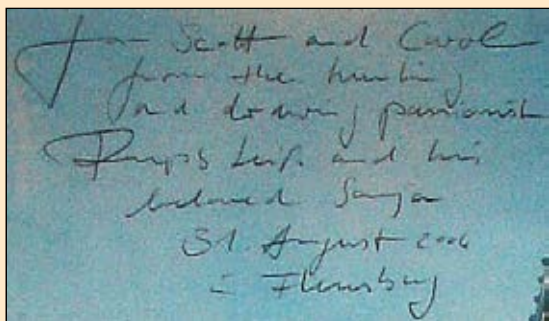 For Scott and Carol
from the hunting
and drawing passionist
and his
beloved Sanja
31. August 2006
in Flensburg